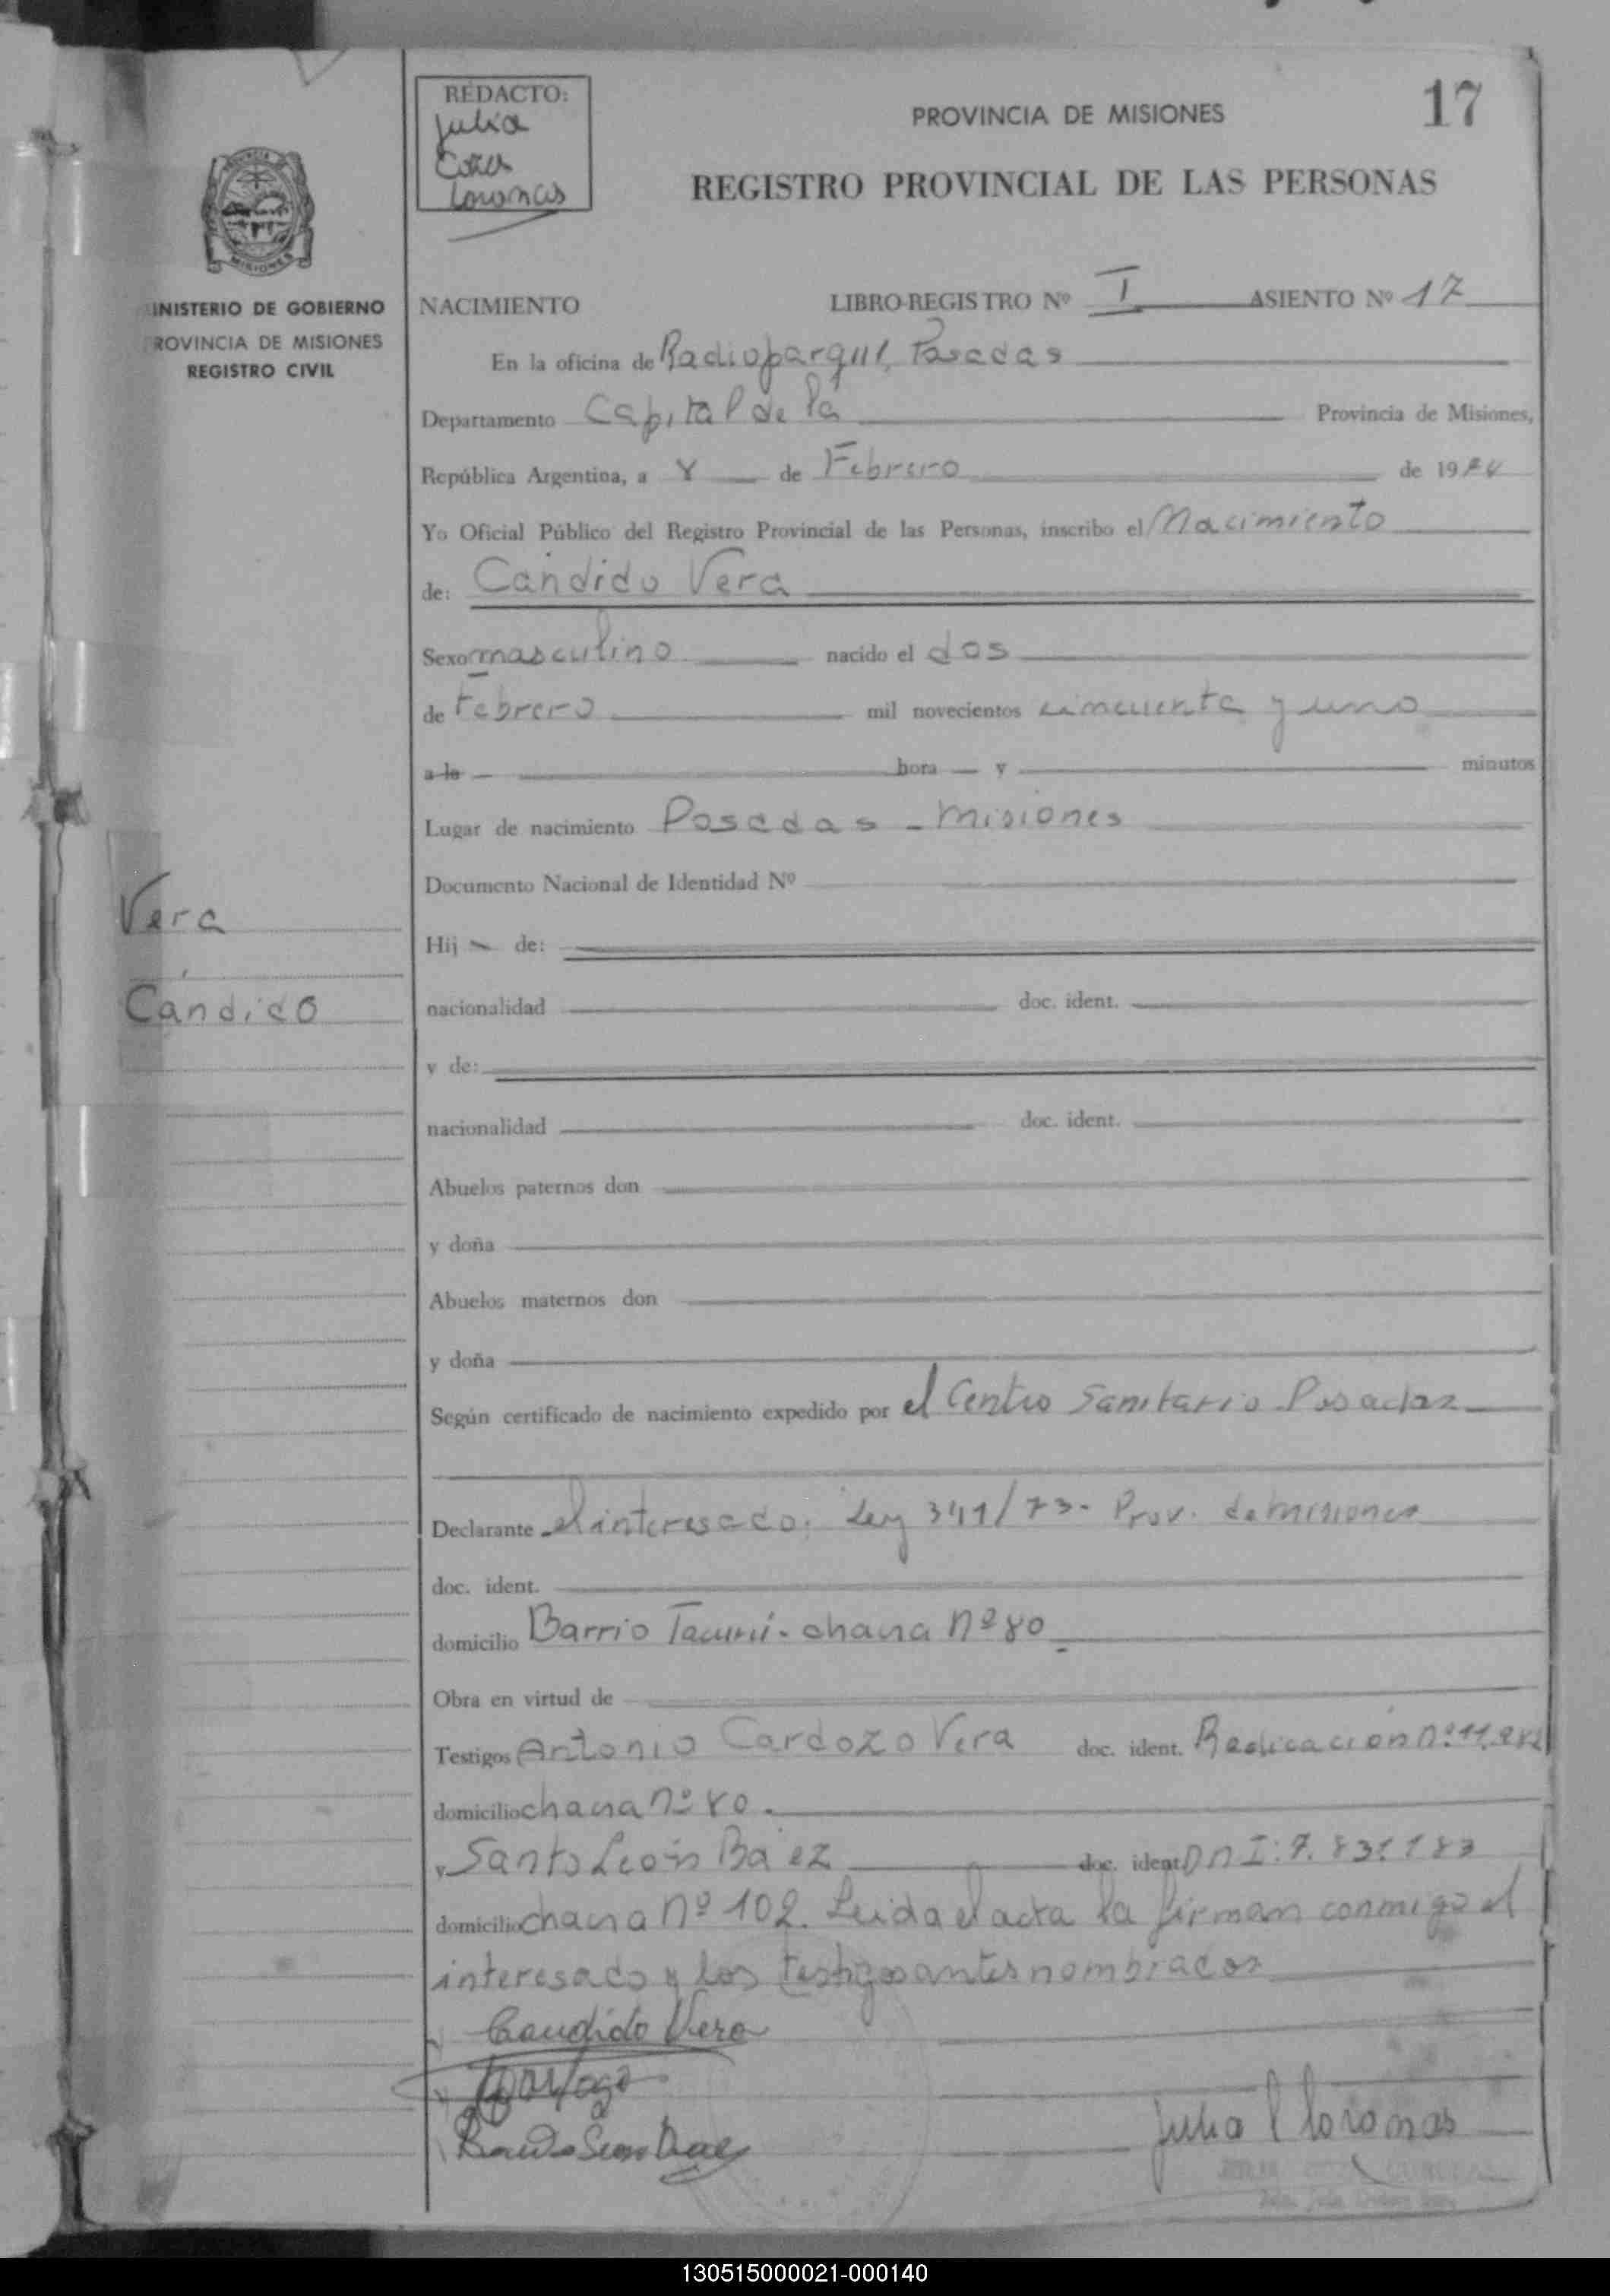 17
REDACTO:
Julia
Cora
Loronas
PROVINCIA DE MISIONES
REGISTRO PROVINCIAL DE LAS PERSONAS
MISIONES
MINISTERIO DE GOBIERNO
PROVINCIA DE MISIONES
REGISTRO CIVIL
NACIMIENTO LIBRO-REGISTRO Nº I ASIENTO Nº 17
En la oficina de Radioparque, Posadas
Departamento Capital de la Provincia de Misiones,
República Argentina, a 8 de Febrero de 1974
Yo Oficial Público del Registro Provincial de las Personas, inscribo el Nacimiento
de: Cándido Vera
Sexo masculino nacido el dos
de Febrero mil novecientos cincuenta y uno
a la hora y minutos
Lugar de nacimiento Posadas - Misiones
Documento Nacional de Identidad Nº
Vera
Cándido
Hij de:
nacionalidad doc. ident.
y de:
nacionalidad doc. ident.
Abuelos paternos don
y doña
Abuelos maternos don
y doña
Según certificado de nacimiento expedido por el Centro Sanitario Posadas
Declarante el interesado; Ley 341/73- Prov. de misiones
doc. ident.
domicilio Barrio - chacra nº 80
Obra en virtud de
Testigos Antonio Cardozo Vera doc. ident. Radicación nº 11.282
domicilio chacra nº 80.
y Santo León Báez doc. ident DNI: 7.831.183
domicilio chacra nº 102. Leida el acta la firman conmigo el
interesado y los testigos antes nombrados
Candido Vera
Julia C Loronas
130515000021-000140